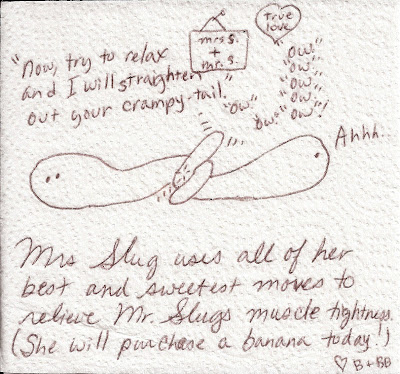 mrs S.
+
mr. S.
true
love
"Now, try to relax
and I will straighten
out your crampy-tail."
"ow!"
"ow!"
"ow!"
"ow!"
"ow!"
"ow"
"ow"
Ahhh...
Mrs Slug uses all of her
best and sweetest moves to
relieve Mr. Slugs muscle tightness.
(She will purchase a banana today!)
♡ B+BB